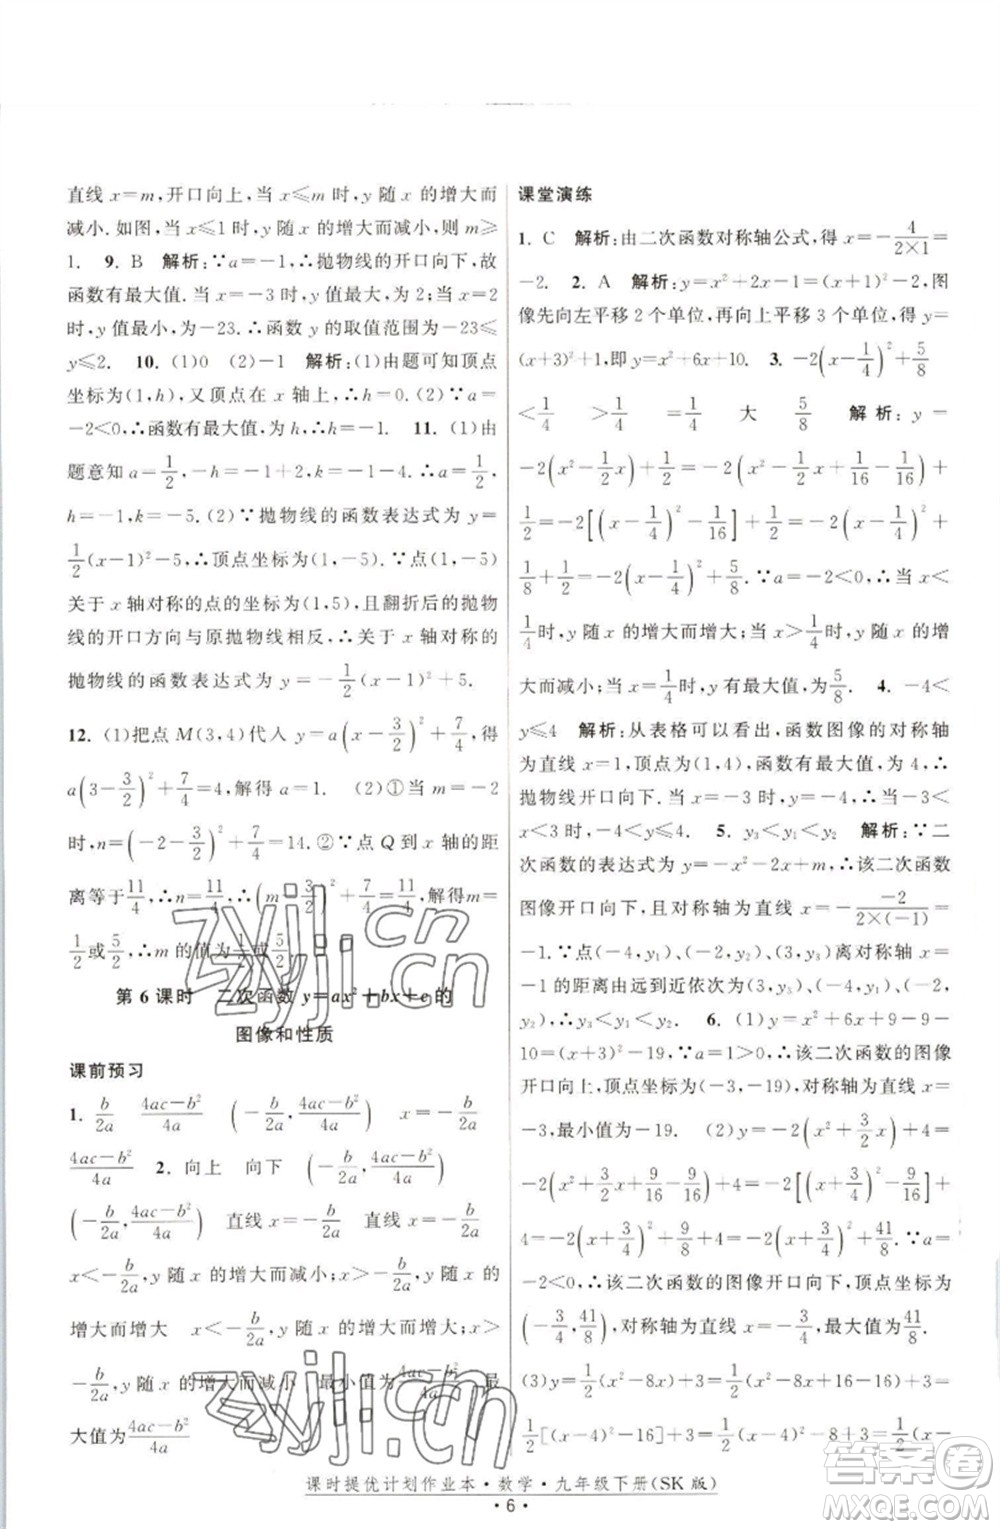 直线 x=m,开口向上,当 x≤m 时,y 随 x 的增大而
减小.当 x≤1 时,y 随 x 的增大而减小,则 m≥
1. 9. B 解析:∵a=-1,∴抛物线的开口向下,故
函数有最大值.当 x=-3 时,y 值最大为 2;当 x=2
时,y 值最小,为-23.∴函数 y 的取值范围为-23≤
y≤2. 10. (1)0 (2)-1 解析:(1)由题可知顶点
坐标为(1,h),又顶点在 x 轴上,∴h=0.(2)∵a=
-2<0,∴函数有最大值,为 h,∴h=-1. 11. (1)由
题意知 a=1/2,-h=-1+2,k=1-4.∴a=1/2,
h=-1,k=-5.(2)∵抛物线的函数表达式为 y=
1/2(x-1)²-5,∴顶点坐标为(1,-5).∵点(1,-5)
关于 x 轴对称的点的坐标为(1,5),且翻折后的抛物
线的开口方向与原抛物线相反,∴关于 x 轴对称的
抛物线的函数表达式为 y=-1/2(x-1)²+5.
12. (1)把点 M(3,4)代入 y=a(x-3/2)²+7/4,得
a(3-3/2)²+7/4=4,解得 a=1. (2)①当 m=-2
时,n=(-2-3/2)²+7/4=14.②∵点 Q 到 x 轴的距
离等于11/4,∴n=11/4.∴(m-3/2)²+7/4=11/4,解得 m=
1/2或5/2,∴m 的值为1/2或5/2.
第 6 课时 二次函数 y=ax²+bx+c 的
图像和性质
课前预习
1. -b/2a (4ac-b²)/4a (-b/2a,(4ac-b²)/4a) x=-b/2a
(4ac-b²)/4a 2. 向上 向下 (-b/2a,(4ac-b²)/4a)
(-b/2a,(4ac-b²)/4a) 直线 x=-b/2a 直线 x=-b/2a
x<-b/2a,y 随 x 的增大而减小;x>-b/2a,y 随 x 的
增大而增大 x<-b/2a,y 随 x 的增大而增大;x>
-b/2a,y 随 x 的增大而减小 最小值为(4ac-b²)/4a 最
大值为(4ac-b²)/4a
课堂演练
1. C 解析:由二次函数对称轴公式,得 x=-4/(2×1)=
-2. 2. A 解析:y=x²+2x-1=(x+1)²-2,图
像先向左平移 2 个单位,再向上平移 3 个单位,得 y=
(x+3)²+1,即 y=x²+6x+10. 3. -2(x-1/4)²+5/8
<1/4 >1/4 1/4 大 5/8 解析:y=
-2(x²-1/2x)+1/2=-2(x²-1/2x+1/16-1/16)+
1/2=-2[(x-1/4)²-1/16]+1/2=-2(x-1/4)²+
1/8+1/2=-2(x-1/4)²+5/8.∵a=-2<0,∴当 x<
1/4时,y 随 x 的增大而增大;当 x>1/4时,y 随 x 的增
大而减小;当 x=1/4时,y 有最大值,为5/8. 4. -4<
y≤4 解析:从表格可以看出,函数图像的对称轴
为直线 x=1,顶点为(1,4),函数有最大值,为 4,∴
抛物线开口向下.∴当 0<x<3 时,-4<y≤4.
5. y₃<y₁<y₂ 解析:∵二
次函数的表达式为 y=-x²-2x+m,∴该二次函数
图像开口向下,且对称轴为直线 x=-(-2)/(2×(-1))=
-1.∵点(-4,y₁),(-2,y₂),(3,y₃)离对称轴 x=
-1 由远及近依次为(3,y₃),(-4,y₁),
(-2,y₂),∴y₃<y₁<y₂. 6. (1)y=x²+6x+9-9-
10=(x+3)²-19,∵a=1>0,∴该二次函数的图像
开口向上,顶点坐标为(-3,-19),对称轴为直线 x=
-3,最小值为-19. (2)y=-2(x²+3/2x)+4=
-2(x²+3/2x+9/16-9/16)+4=-2[(x+3/4)²-9/16]+
4=-2(x+3/4)²+9/8+4=-2(x+3/4)²+41/8.∵a=
-2<0,∴该二次函数的图像开口向下,顶点坐标为
(-3/4,41/8),对称轴为直线 x=-3/4,最大值为41/8.
(3)y=1/2(x²-8x)+3=1/2(x²-8x+16-16)+3=
1/2[(x-4)²-16]+3=1/2(x-4)²-8+3=1/2(x-
课时提优计划作业本·数学·九年级下册(SK 版)
· 6 ·
zyjl.cn
zyjl.cn
作业精灵
MXQE.COM